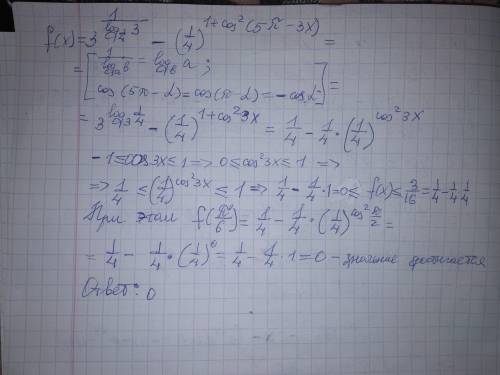 f(x)=3^{\frac{1}{\log_{\frac{1}{4}}3}} - (\frac{1}{4})^{1+cos^2(5π-3x)} =
= [\frac{1}{\log_a b} = \log_b a;
cos(5π-α)=cos(π-α)=-cosα] =
= 3^{\log_3 \frac{1}{4}} - (\frac{1}{4})^{1+cos^2 3x} = \frac{1}{4} - \frac{1}{4}·(\frac{1}{4})^{cos^2 3x}
-1≤cos3x≤1 => 0≤cos^2 3x≤1 =>
=> \frac{1}{4} ≤ (\frac{1}{4})^{cos^2 3x} ≤ 1 => \frac{1}{4} - \frac{1}{4}·1=0≤ f(x)≤ \frac{3}{16} = \frac{1}{4} - \frac{1}{4}·\frac{1}{4}
При этом f(\frac{π}{6}) = \frac{1}{4} - \frac{1}{4}·(\frac{1}{4})^{cos^2 \frac{π}{2}} =
= \frac{1}{4} - \frac{1}{4}·(\frac{1}{4})^0 = \frac{1}{4} - \frac{1}{4}·1=0 - значение достигается
Ответ: 0